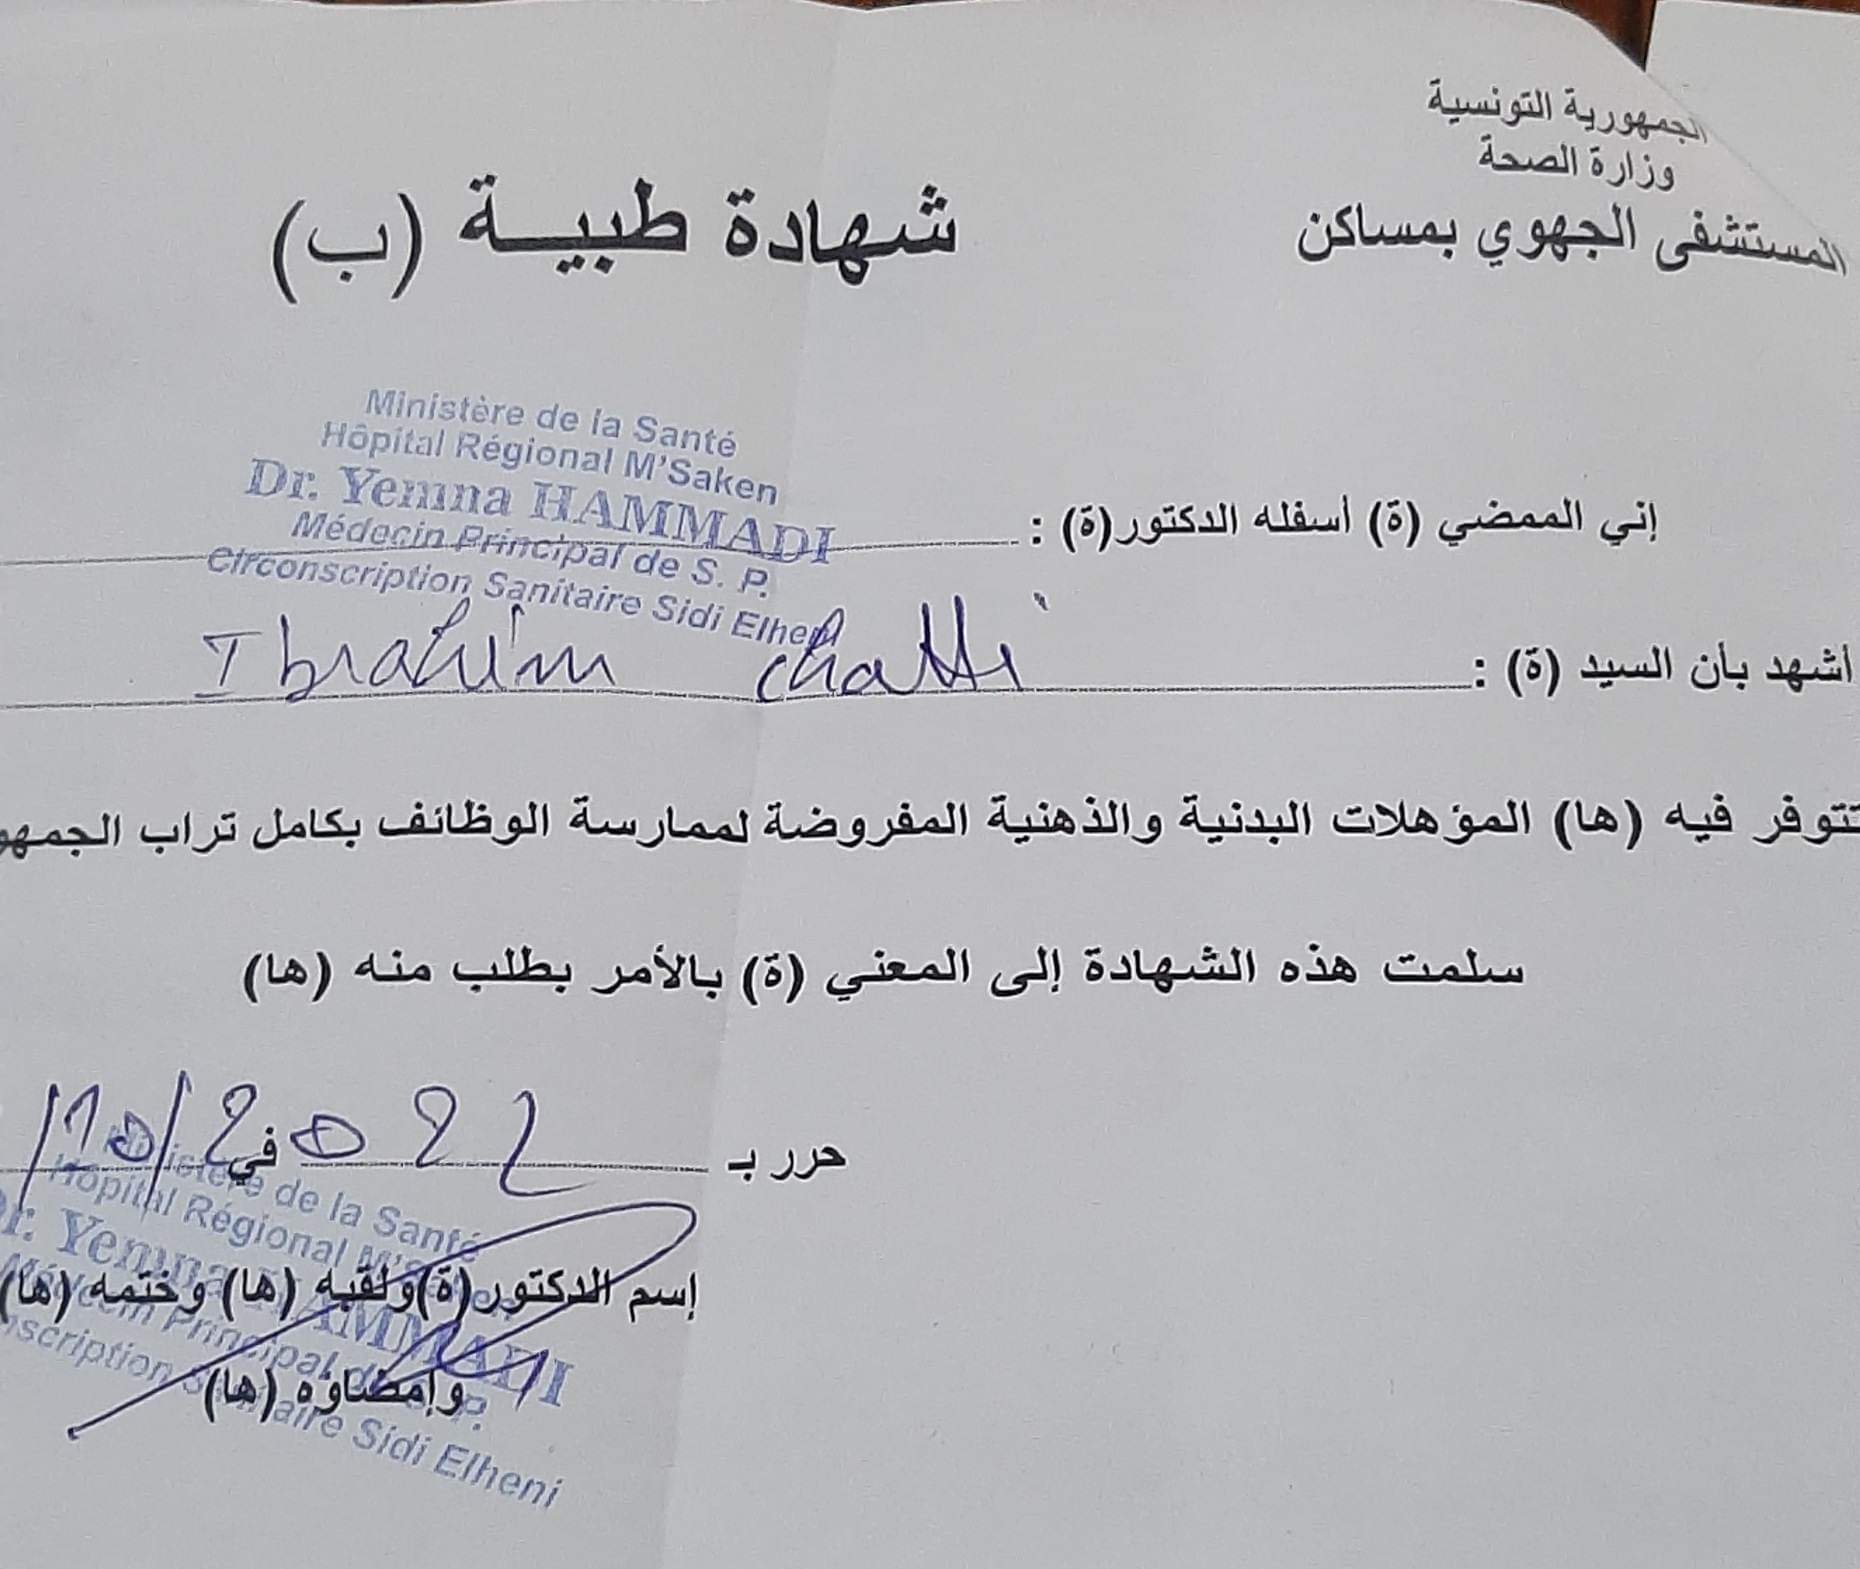 الجمهورية التونسية
وزارة الصحة
المستشفى الجهوي بمساكن
شهادة طبيـــة (ب)
Ministère de la Santé
Hôpital Régional M'Saken
Dr. Yemna HAMMADI
Médecin Principal de S. P.
Circonscription Sanitaire Sidi Elheni
إني الممضي (ة) أسفله الدكتور(ة) :
أشهد بأن السيد (ة) : Ibrahim chatti
تتوفر فيه (ها) المؤهلات البدنية والذهنية المفروضة لممارسة الوظائف بكامل تراب الجمهو
سلمت هذه الشهادة إلى المعني (ة) بالأمر بطلب منه (ها)
حرر بـ في /10/2022
Ministère de la Santé
Hôpital Régional M'Saken
Dr. Yemna HAMMADI
Médecin Principal de S. P.
nscription Sanitaire Sidi Elheni
إسم الدكتور(ة)ولقبه (ها) وختمه (ها)
وإمضاؤه (ها)